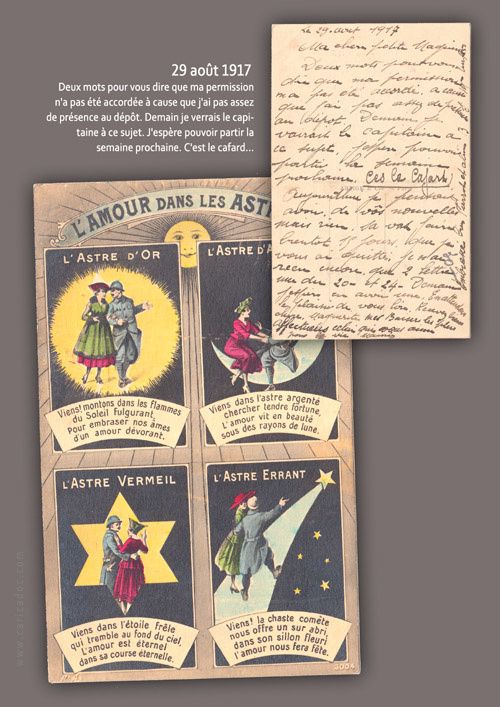 29 août 1917
Deux mots pour vous dire que ma permission
n'a pas été accordée à cause que j'ai pas assez
de présence au dépôt. Demain je verrais le capi-
taine à ce sujet. J'espère pouvoir partir la
semaine prochaine. C'est le cafard...
Le 29 août 1917
Ma chère petite
Deux mots pour vous
dire que ma permission
n'a pas été accordé, a cause
que j'ai pas assez de présence
au dépôt. Demain je
verrait le capitaine à
ce sujet. J'espère pouvoir
partir la semaine
prochaine. Ces le Cafard
Aujourd'hui je pensais
avoir de vos nouvelles
mais rien. la va faire
bientôt 15 jours que je
vous ai quitter, je n'ai
reçu encore que 2 lettres
une du 20 et 24. Demain
j'espère en avoir une.
L'AMOUR DANS LES AST
L'ASTRE D'OR
Viens! montons dans les flammes
du Soleil fulgurant,
Pour embraser nos âmes
d'un amour dévorant.
L'ASTRE D'A
Viens dans l'astre argenté
chercher tendre fortune,
L'amour vit en beauté
sous des rayons de lune.
L'ASTRE VERMEIL
Viens dans l'étoile frêle
qui tremble au fond du ciel,
L'amour est éternel
dans sa course éternelle.
L'ASTRE ERRANT
Viens! la chaste comète
nous offre un sur abri,
dans son sillon fleuri
l'amour nous fera fête.
3004
www.caricadoc.com